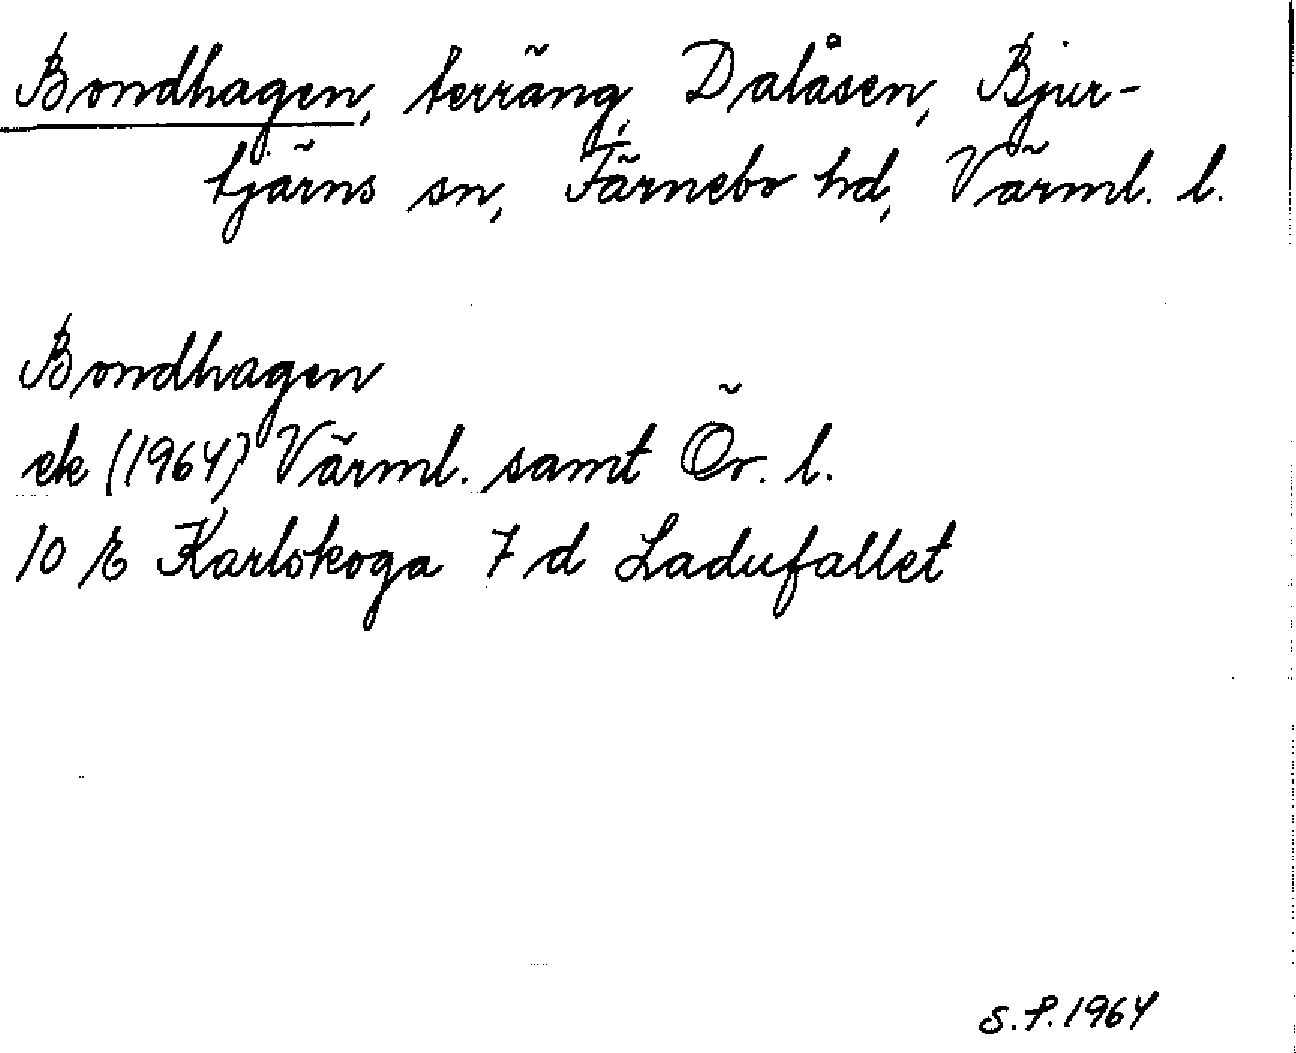 Bondhagen, terräng, Dalåsen, Bjur-
tjärns sn, Färnebo hd, Värml. l.
Bondhagen
ek (1964) Värml. samt Ör. l.
10 E Karlskoga 7 d Ladufallet
S.P. 1964